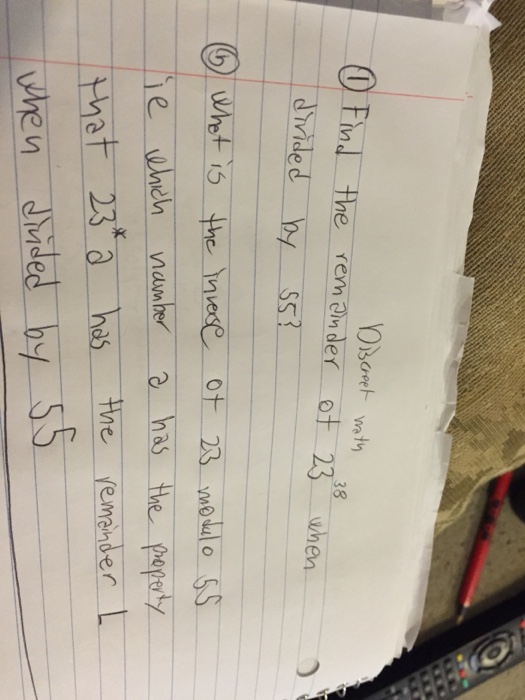 Discreet math
① Find the remainder of 23³⁸ when
divided by 55?
ⓗ what is the inverse of 23 modulo 55
ie which number a has the property
that 23*a has the remainder 1
when divided by 55